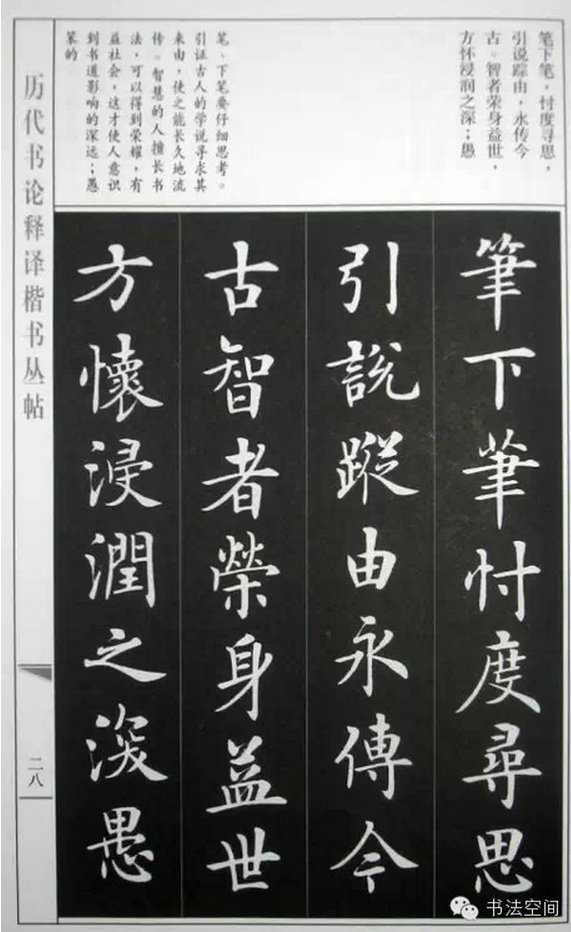 笔下笔，忖度寻思，
引说踪由，永传今
古。智者荣身益世，
方怀浸润之深；愚
笔、下笔要仔细思考。
引证古人的学说寻求其
来由，使之能长久地流
传。智慧的人擅长书
法，可以得到荣耀，有
益社会，这才使人意识
到书道影响的深远；愚
笨的
筆下筆忖度尋思
引説蹤由永傳今
古智者榮身益世
方懷浸潤之深愚
历代书论释译楷书丛帖
二八
书法空间